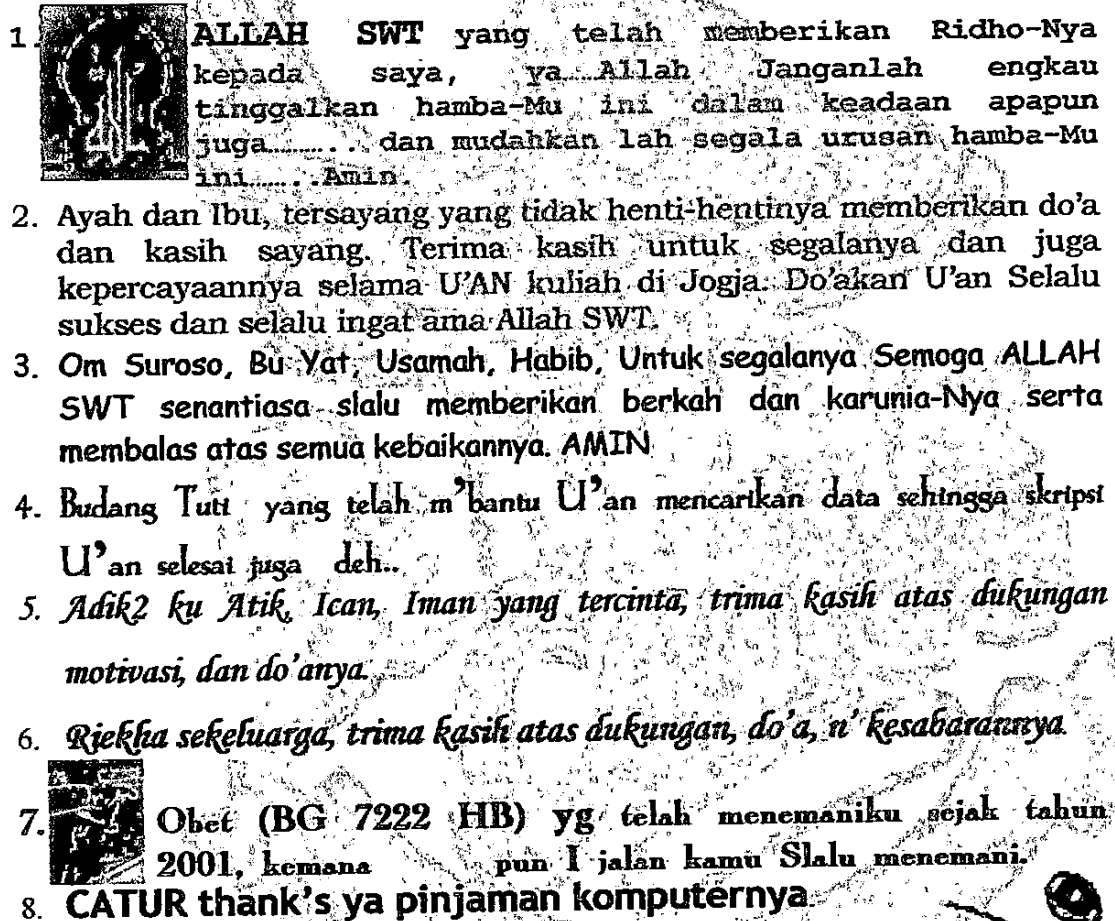 1. ALLAH SWT yang telah memberikan Ridho-Nya
kepada saya, ya...Allah Janganlah engkau
tinggalkan hamba-Mu ini dalam keadaan apapun
juga.......... dan mudahkan lah segala urusan hamba-Mu
ini.......Amin.
2. Ayah dan Ibu, tersayang yang tidak henti-hentinya memberikan do'a
dan kasih sayang. Terima kasih untuk segalanya dan juga
kepercayaannya selama U'AN kuliah di Jogja. Do'akan U'an Selalu
sukses dan selalu ingat ama Allah SWT.
3. Om Suroso, Bu Yat, Usamah, Habib, Untuk segalanya Semoga ALLAH
SWT senantiasa slalu memberikan berkah dan karunia-Nya serta
membalas atas semua kebaikannya. AMIN
4. Budang Tuti yang telah m'bantu U'an mencarikan data sehingga skripsi
U'an selesai juga deh..
5. Adik2 ku Atik, Ican, Iman yang tercinta, trima kasih atas dukungan
motivasi, dan do'anya.
6. Riekha sekeluarga, trima kasih atas dukungan, do'a, n' kesabarannya.
7. Obet (BG 7222 HB) yg telah menemaniku sejak tahun
2001, kemana pun I jalan kamu Slalu menemani.
8. CATUR thank's ya pinjaman komputernya.